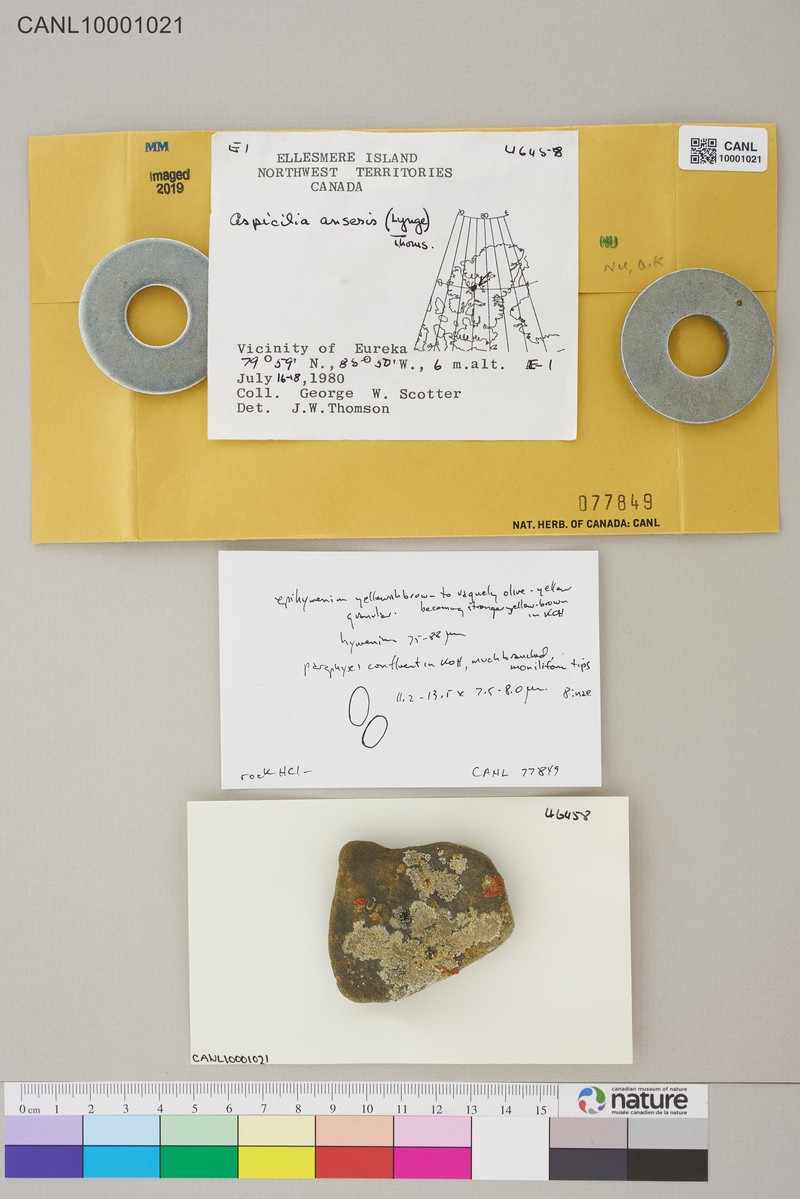 CANL10001021
MM
Imaged
2019
E1
46458
ELLESMERE ISLAND
NORTHWEST TERRITORIES
CANADA
Aspicilia anseris (Lynge)
Thoms.
80
Vicinity of Eureka
79°59' N., 85°50'W., 6 m.alt. E-1
July 16-18, 1980
Coll. George W. Scotter
Det. J.W.Thomson
CANL
10001021
NU
NU, O.K
077849
NAT. HERB. OF CANADA: CANL
epihymenium yellowish brown to vaguely olive-yellow
granular. becoming stronger yellow-brown
in KOH
hymenium 75-88 µm
paraphyses confluent in KOH, much branched,
moniliform tips
11.2-13.5 x 7.5-8.0 µm 8 in ae
rock HCl-
CANL 77849
46458
CANL10001021
0 cm 1 2 3 4 5 6 7 8 9 10 11 12 13 14 15
canadian museum of nature
nature
musée canadien de la nature